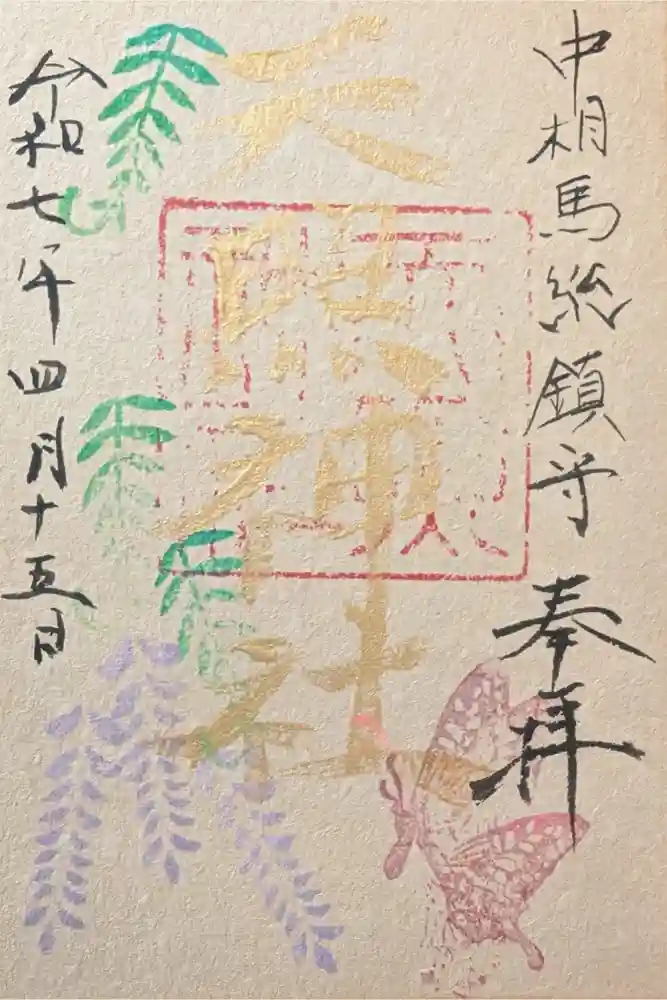 中相馬総鎮守
奉拝
天照神社
令和七年四月十五日